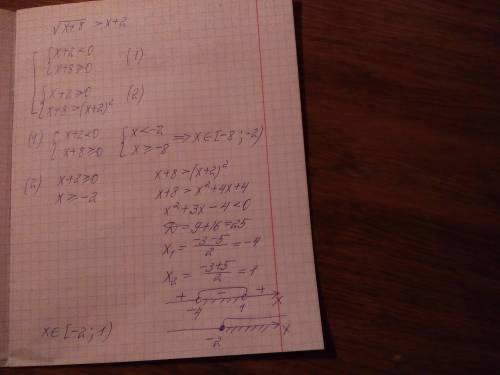 √x+8 > x+2
{ x+2<0
{ x+8≥0 (1)
{ x+2≥0
{ x+8>(x+2)² (2)
(1) { x+2<0 { x<-2 ⇒ x∈[-8; -2)
{ x+8≥0 { x≥-8
(2) x+2≥0 x+8>(x+2)²
x≥-2 x+8>x²+4x+4
x²+3x-4<0
D=9+16=25
x₁ = (-3-5)/2 = -4
x₂ = (-3+5)/2 = 1
+ - +
-4 1 x
x
-2
x∈[-2; 1)